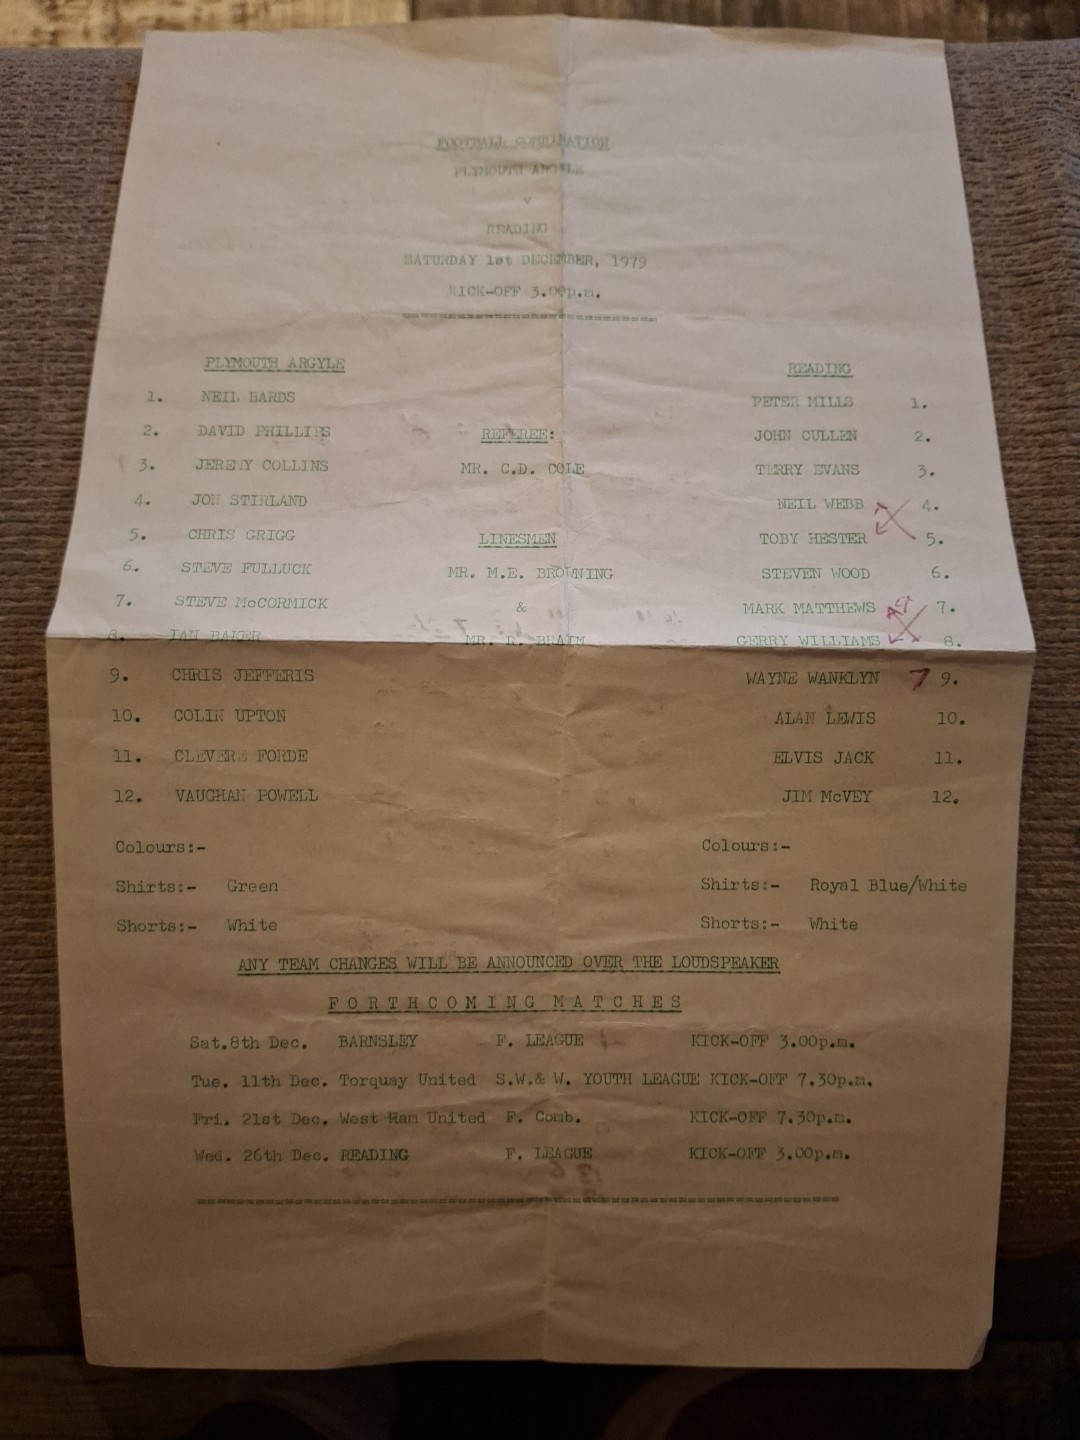 FOOTBALL COMBINATION
PLYMOUTH ARGYLE
v
READING
SATURDAY 1st DECEMBER, 1979
KICK-OFF 3.00p.m.
PLYMOUTH ARGYLE READING
1. NEIL HARDS PETER MILLS 1.
2. DAVID PHILLIPS REFEREE: JOHN CULLEN 2.
3. JEREMY COLLINS MR. C.D. COLE TERRY EVANS 3.
4. JON STIRLAND NEIL WEBB 4.
5. CHRIS GRIGG LINESMEN TOBY HESTER 5.
6. STEVE FULLUCK MR. M.E. BROWNING STEVEN WOOD 6.
7. STEVE McCORMICK & MARK MATTHEWS 9 7.
8. IAN BAKER MR. R. BRAIM GERRY WILLIAMS 8.
9. CHRIS JEFFERIS WAYNE WANKLYN 7 9.
10. COLIN UPTON ALAN LEWIS 10.
11. CLEVERE FORDE ELVIS JACK 11.
12. VAUGHAN POWELL JIM McVEY 12.
Colours:- Colours:-
Shirts:- Green Shirts:- Royal Blue/White
Shorts:- White Shorts:- White
ANY TEAM CHANGES WILL BE ANNOUNCED OVER THE LOUDSPEAKER
FORTHCOMING MATCHES
Sat.8th Dec. BARNSLEY F. LEAGUE KICK-OFF 3.00p.m.
Tue. 11th Dec. Torquay United S.W.& W. YOUTH LEAGUE KICK-OFF 7.30p.m.
Fri. 21st Dec. West Ham United F. Comb. KICK-OFF 7.30p.m.
Wed. 26th Dec. READING F. LEAGUE KICK-OFF 3.00p.m.